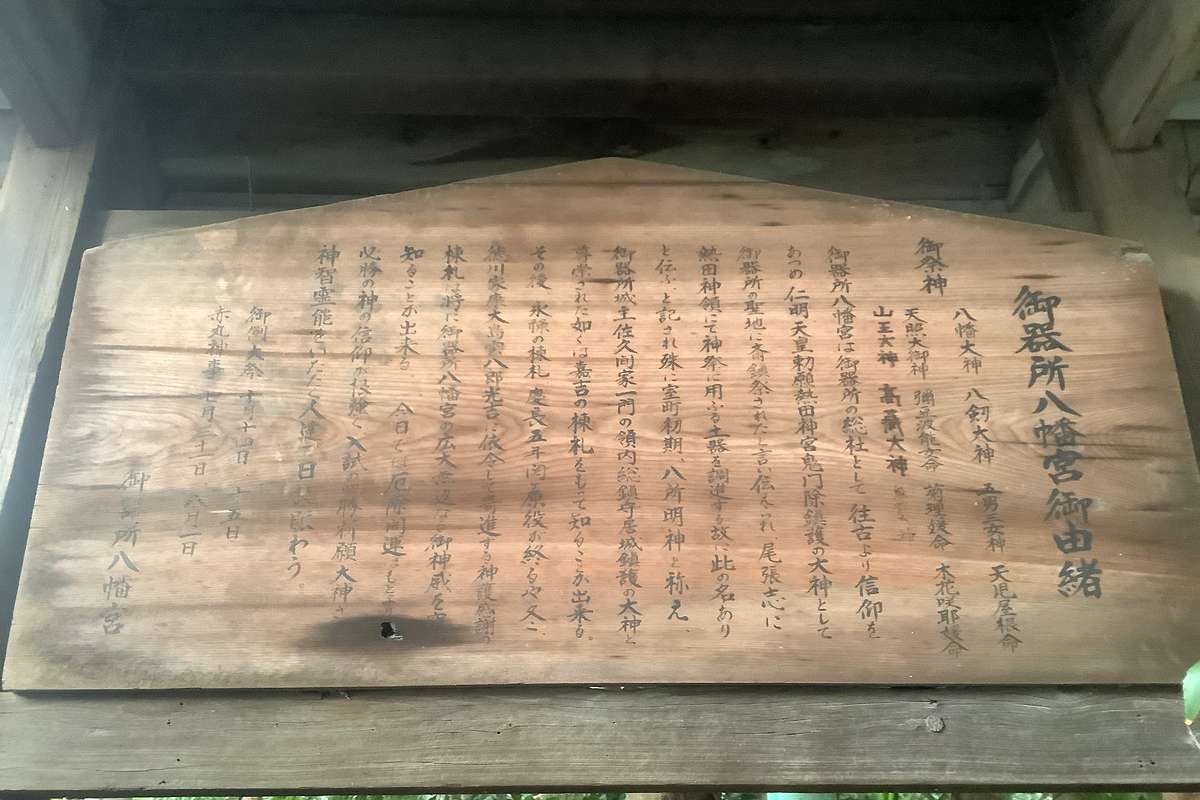 御器所八幡宮御由緒
御祭神
八幡大神 八剱大神 五男三女神 天児屋根命
天照大御神 彌都波能女命 菊理媛命 木花咲耶媛命
山王大神 高蔵大神
御器所八幡宮は御器所の総社として往古より信仰を
あつめ 仁明天皇勅願熱田神宮鬼門除鎮護の大神として
御器所の聖地に斎鎮祭されたと言い伝えられ 尾張志に
熱田神領にて神祭に用ふる土器を調進する故に此の名あり
と伝ふと記され殊に室町初期 八所明神と称え
御器所城主佐久間家一門の領内総鎮守居城鎮護の大神と
尊崇された如くは嘉吉の棟札をもって知ることが出来る。
その後 永禄の棟札 慶長五年関ヶ原役が終るや
徳川家康大島 八郎光吉に依令して寄進する神護感謝の
棟札は将に御器所八幡宮の広大無辺なる御神威を
知ることが出来る 今日では厄除開運
必勝の神の信仰が根強く入試の勝利願大神
神智霊能をいただく人達で日 賑わう。
御例大祭 十月十四日 十五日
赤丸神事 七月三十一日 八月一日
御器所八幡宮